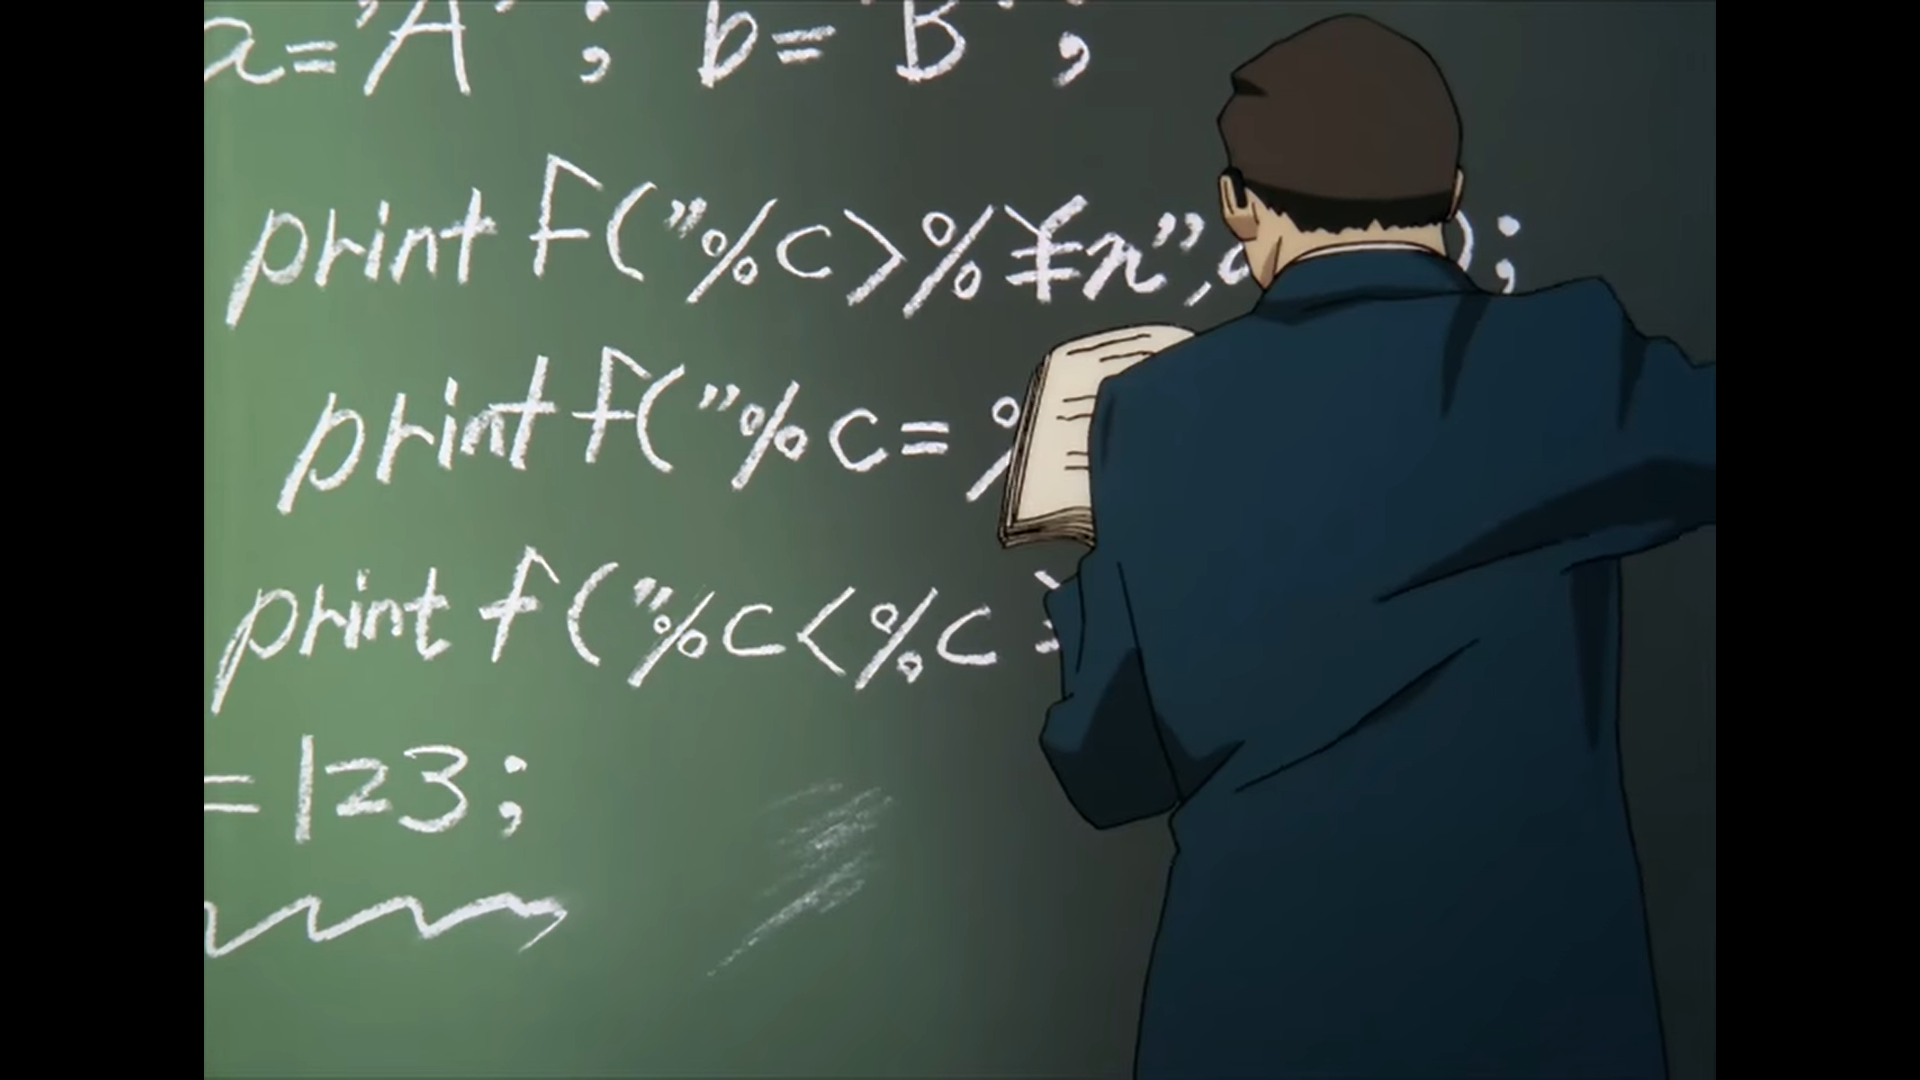 a='A'; b='B';
printf("%c>%¥n", );
printf("%c=
printf("%c<%c
=123;